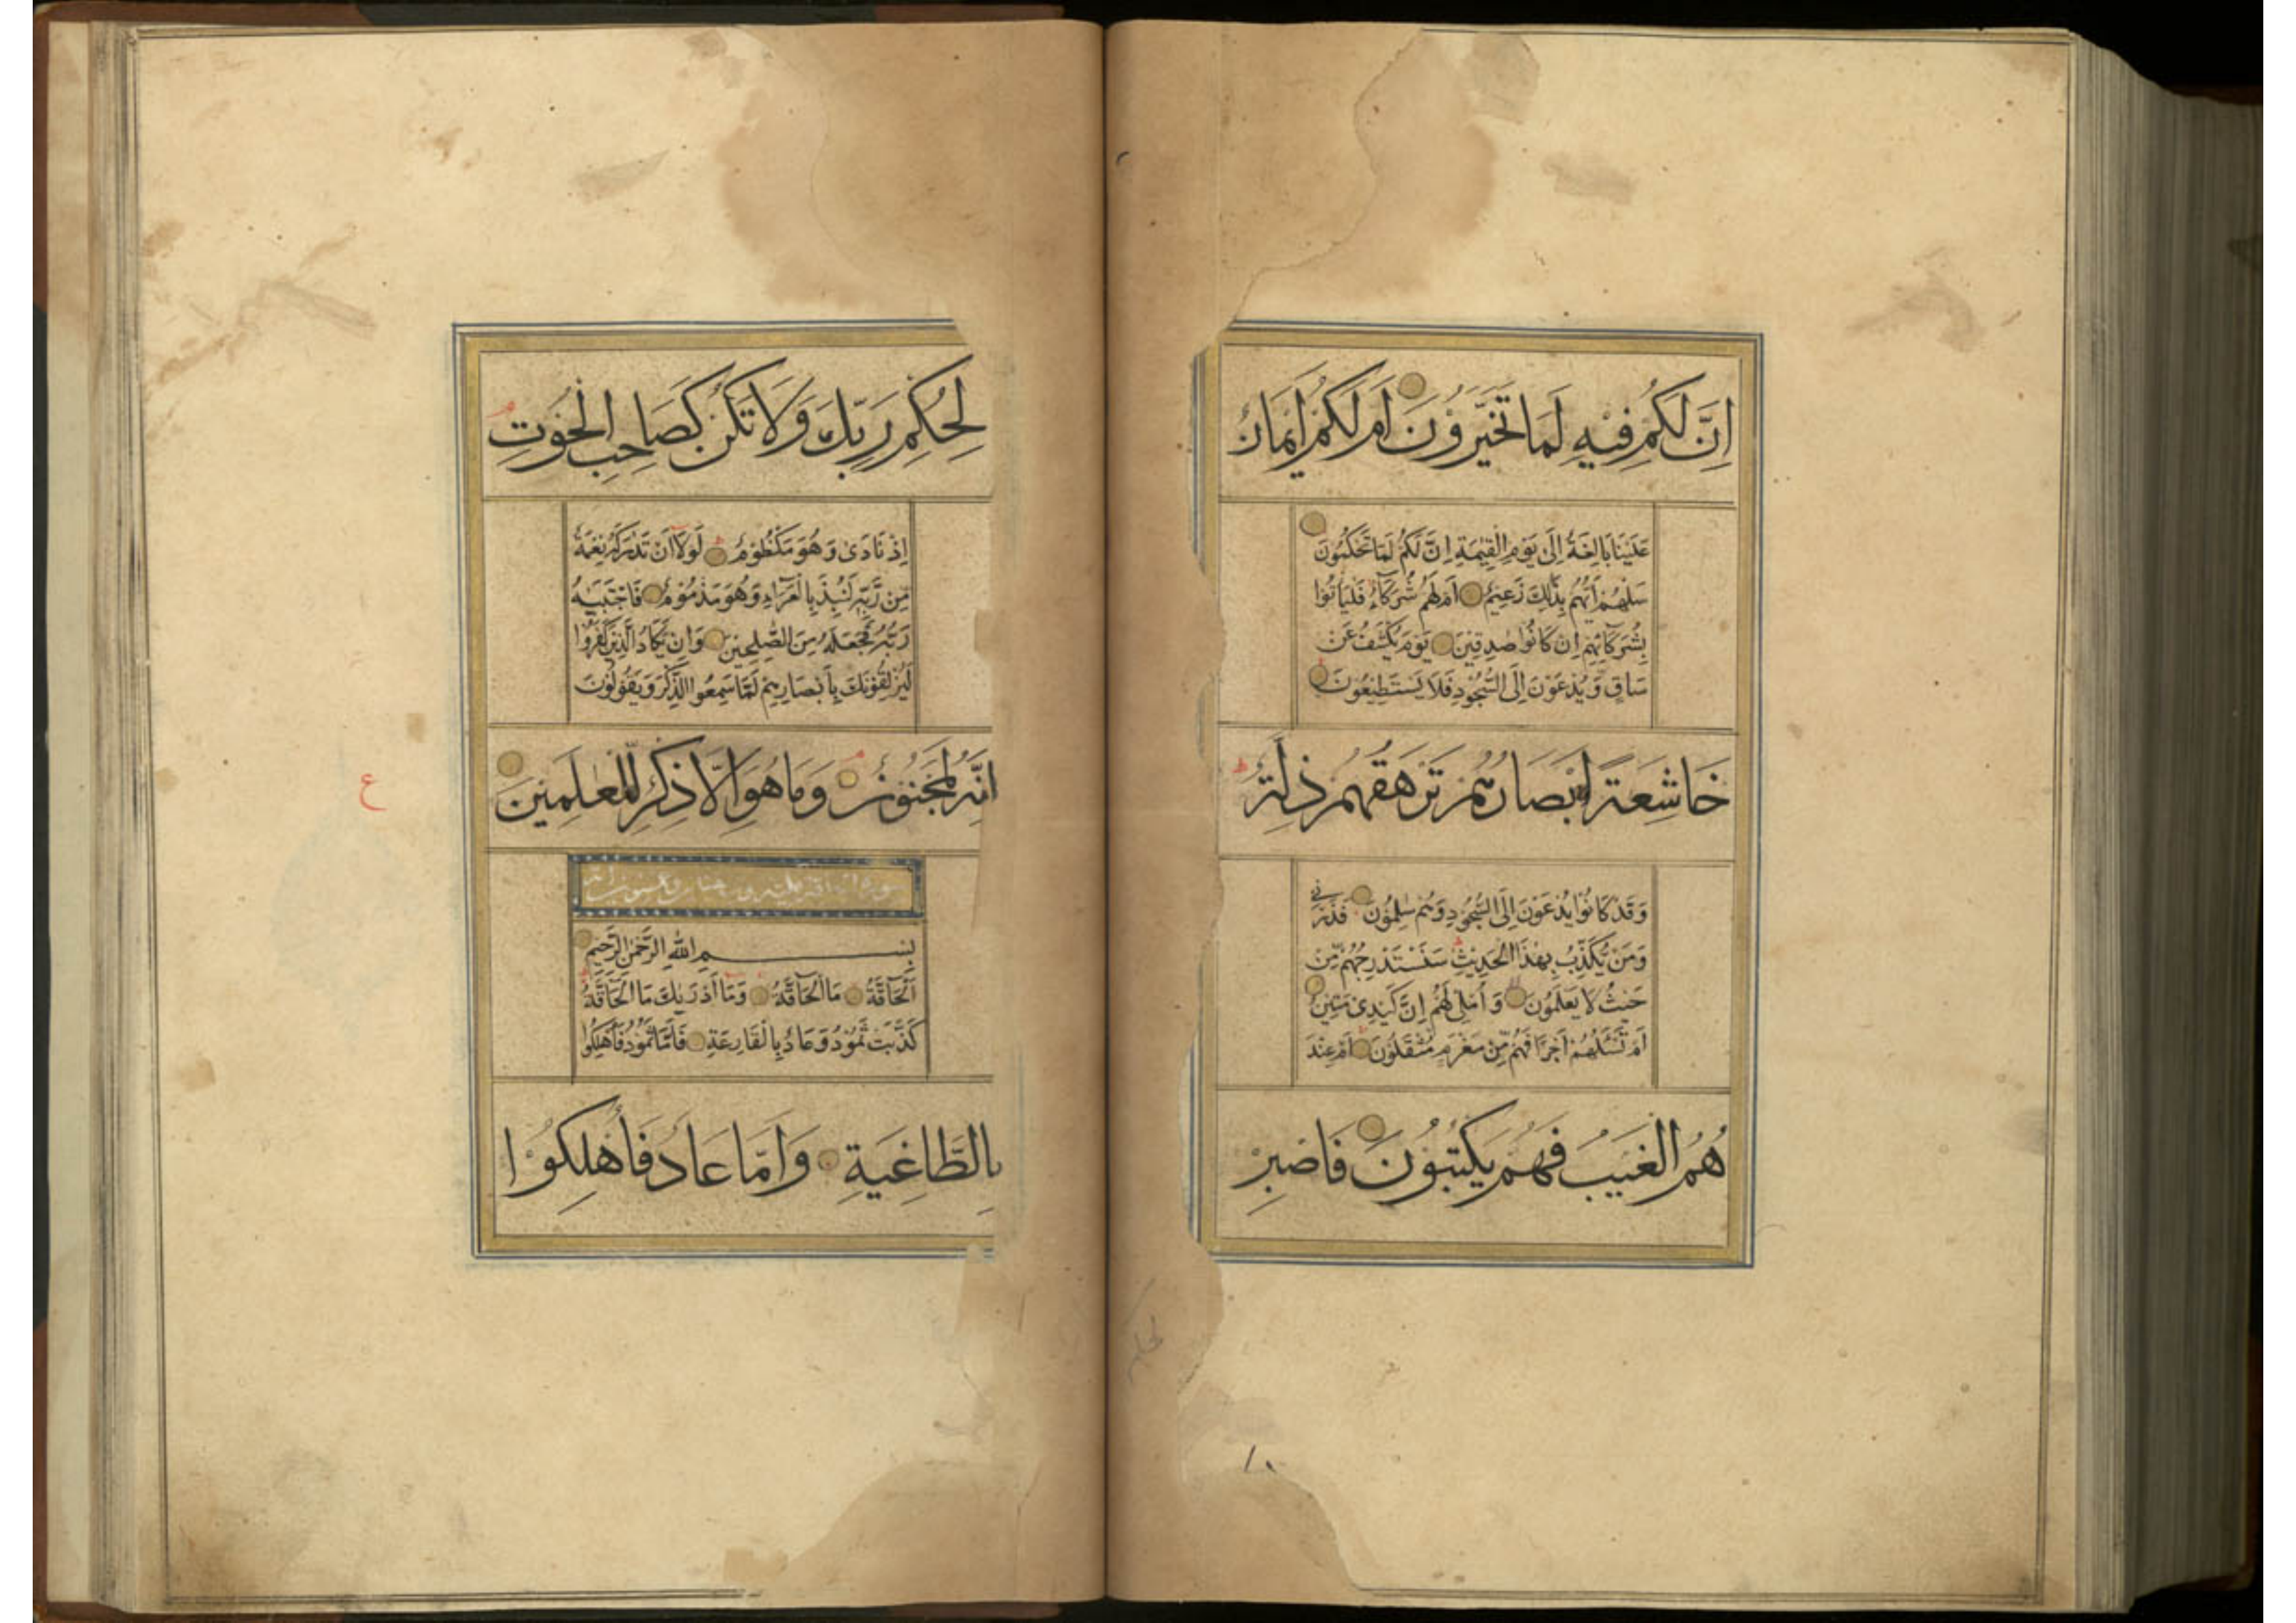 اِنَّ لَكُمْ فِيْهِ لَمَا تَخَيَّرُوْنَ اَمْ لَكُمْ اَيْمَانٌ
عَلَيْنَا بَالِغَةٌ اِلٰى يَوْمِ الْقِيٰمَةِ اِنَّ لَكُمْ لَمَا تَحْكُمُوْنَ
سَلْهُمْ اَيُّهُمْ بِذٰلِكَ زَعِيْمٌ اَمْ لَهُمْ شُرَكَآءُ فَلْيَاْتُوْا
بِشُرَكَآئِهِمْ اِنْ كَانُوْا صٰدِقِيْنَ يَوْمَ يُكْشَفُ عَنْ
سَاقٍ وَّيُدْعَوْنَ اِلَى السُّجُوْدِ فَلَا يَسْتَطِيْعُوْنَ
خَاشِعَةً اَبْصَارُهُمْ تَرْهَقُهُمْ ذِلَّةٌ
وَقَدْ كَانُوْا يُدْعَوْنَ اِلَى السُّجُوْدِ وَهُمْ سٰلِمُوْنَ فَذَرْنِيْ
وَمَنْ يُّكَذِّبُ بِهٰذَا الْحَدِيْثِ سَنَسْتَدْرِجُهُمْ مِّنْ
حَيْثُ لَا يَعْلَمُوْنَ وَاُمْلِيْ لَهُمْ اِنَّ كَيْدِيْ مَتِيْنٌ
اَمْ تَسْئَلُهُمْ اَجْرًا فَهُمْ مِّنْ مَّغْرَمٍ مُّثْقَلُوْنَ اَمْ عِنْدَ
هُمُ الْغَيْبُ فَهُمْ يَكْتُبُوْنَ فَاصْبِرْ
لِحُكْمِ رَبِّكَ وَلَا تَكُنْ كَصَاحِبِ الْحُوْتِ
اِذْ نَادٰى وَهُوَ مَكْظُوْمٌ لَوْلَا اَنْ تَدٰرَكَهُ نِعْمَةٌ
مِّنْ رَّبِّهِ لَنُبِذَ بِالْعَرَآءِ وَهُوَ مَذْمُوْمٌ فَاجْتَبٰيهُ
رَبُّهُ فَجَعَلَهُ مِنَ الصّٰلِحِيْنَ وَاِنْ يَّكَادُ الَّذِيْنَ كَفَرُوْا
لَيُزْلِقُوْنَكَ بِاَبْصَارِهِمْ لَمَّا سَمِعُوا الذِّكْرَ وَيَقُوْلُوْنَ
اِنَّهُ لَمَجْنُوْنٌ وَمَا هُوَ اِلَّا ذِكْرٌ لِّلْعٰلَمِيْنَ
ع
بِسْمِ اللهِ الرَّحْمٰنِ الرَّحِيْمِ
اَلْحَآقَّةُ مَا الْحَآقَّةُ وَمَا اَدْرٰيكَ مَا الْحَآقَّةُ
كَذَّبَتْ ثَمُوْدُ وَعَادٌ بِالْقَارِعَةِ فَاَمَّا ثَمُوْدُ فَاُهْلِكُوْا
بِالطَّاغِيَةِ وَاَمَّا عَادٌ فَاُهْلِكُوْا